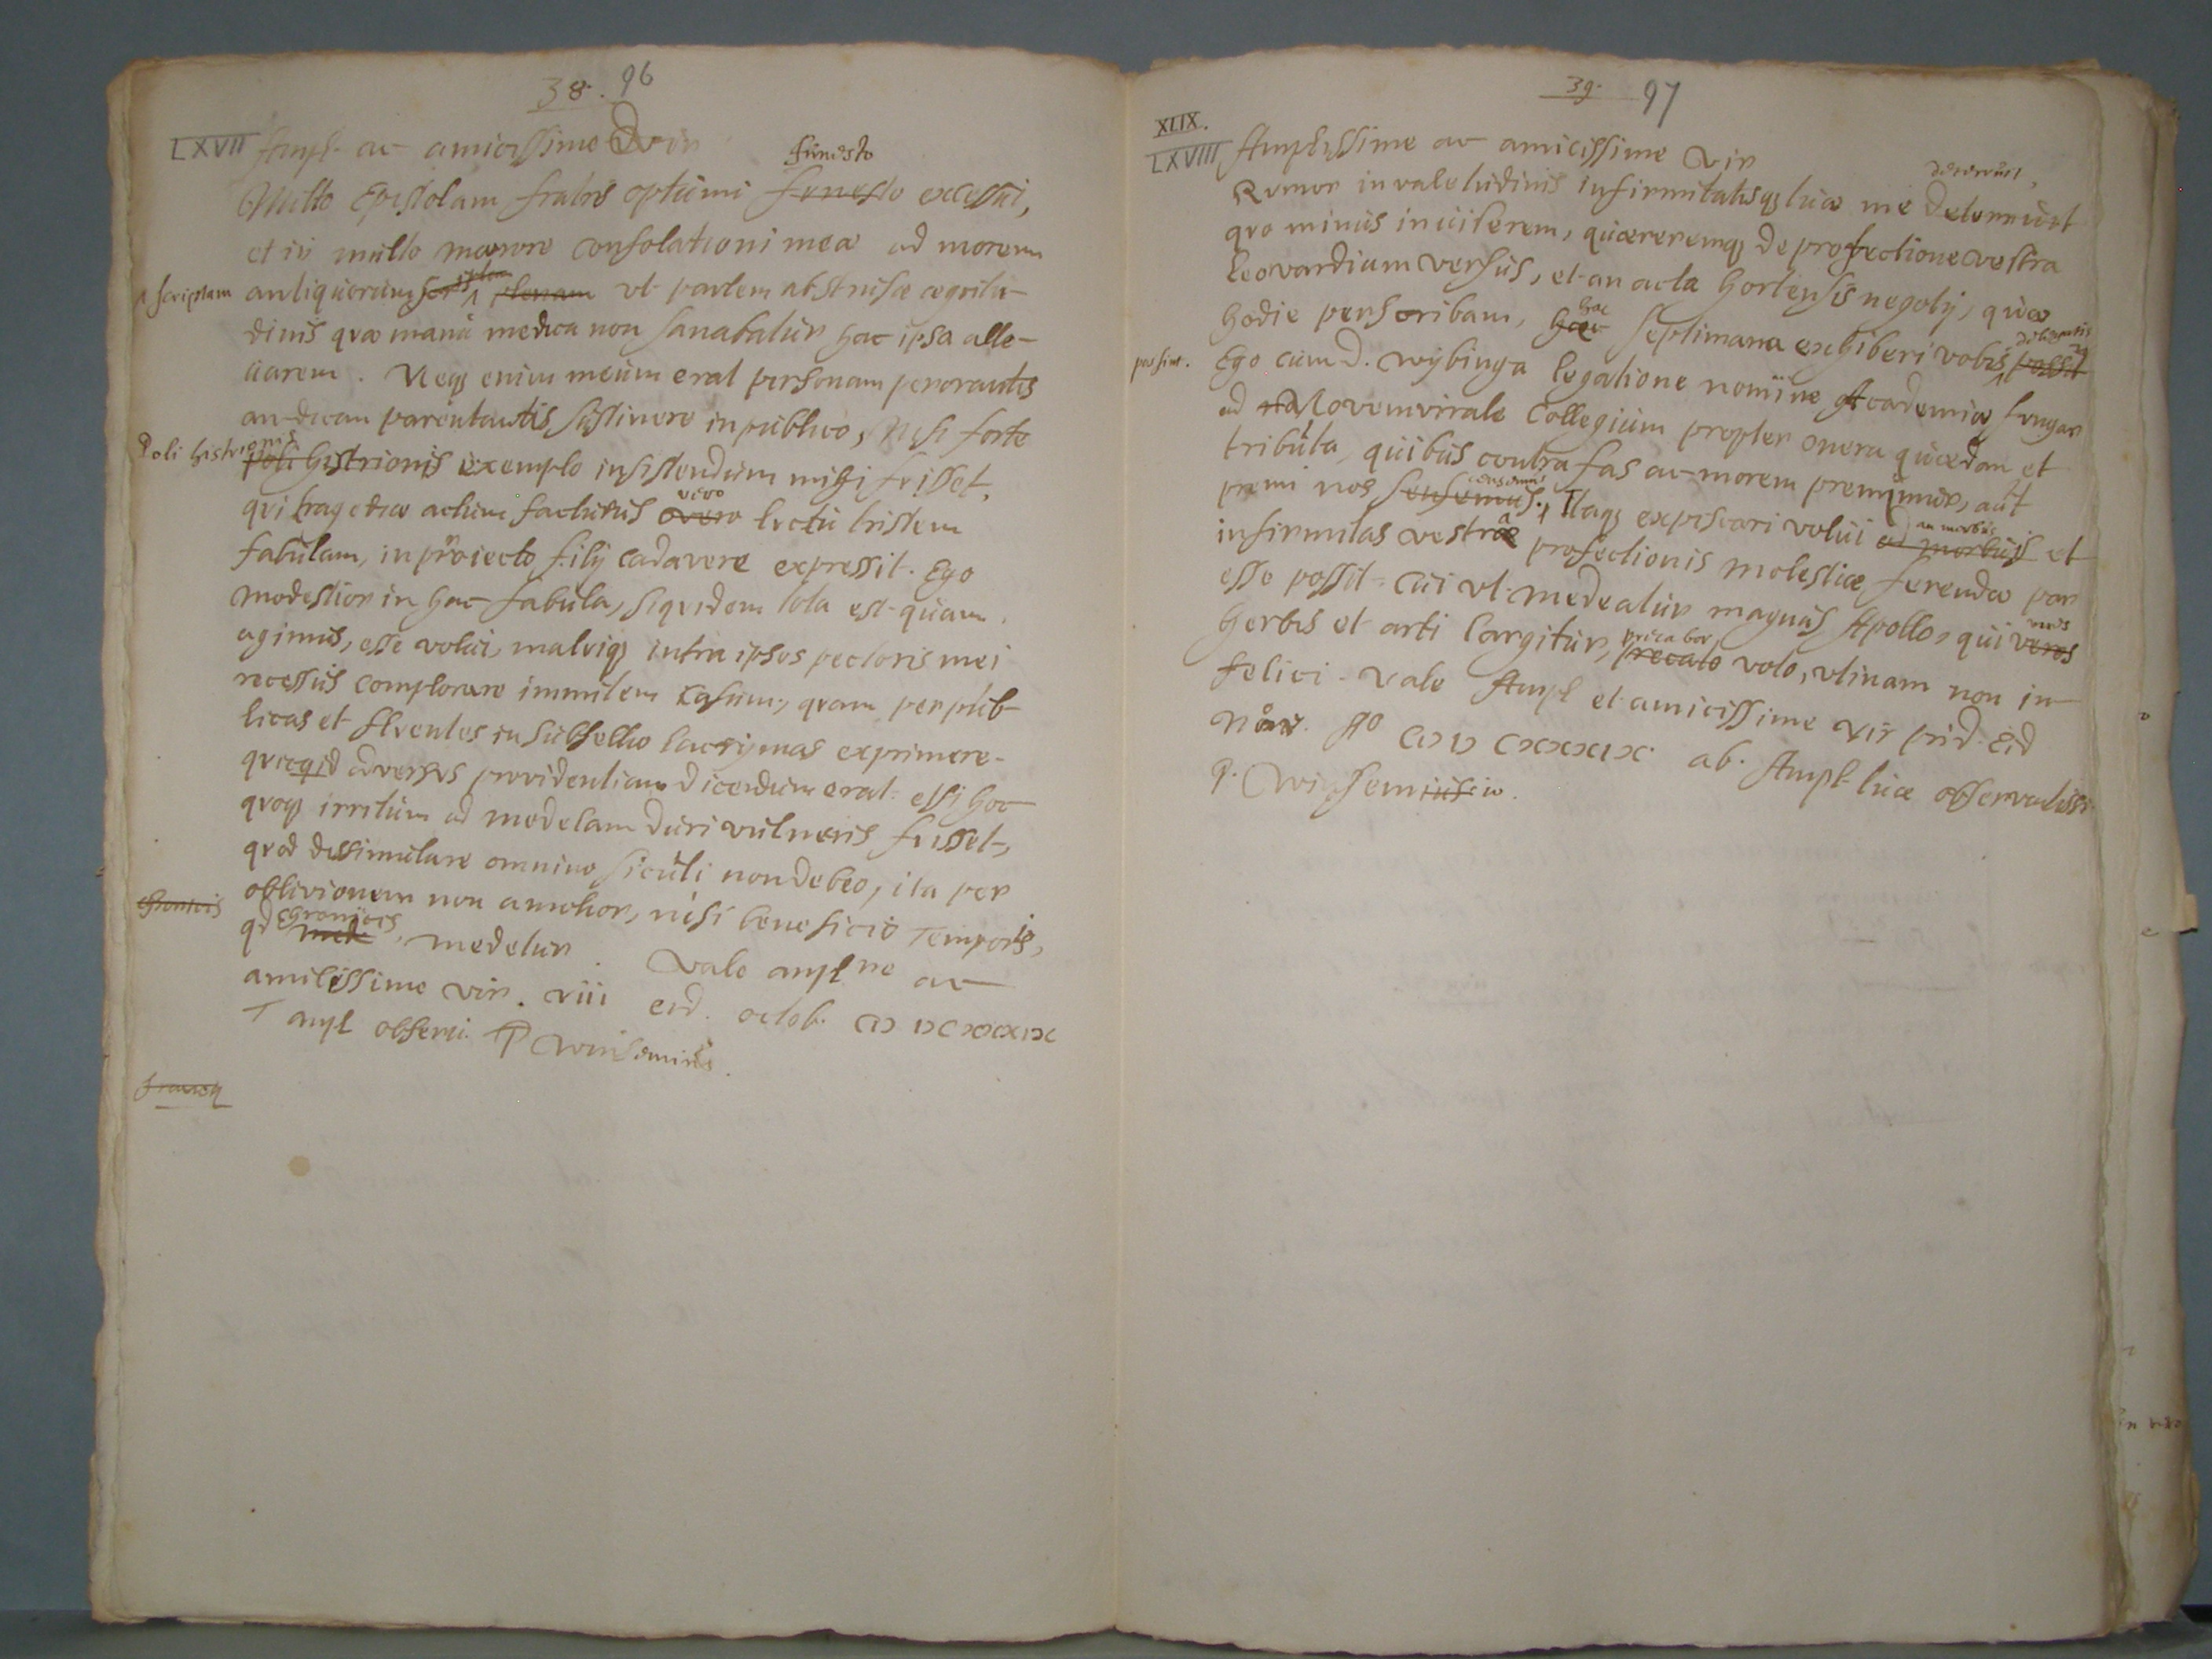 38. 96
LXVII Ampl. ac amicissime Vir
funesto
Mitto Epistolam fratris optumi funesto excessui,
et in multo mœrore consolationi meæ ad morem
scriptam antiquorum plenam vt partem abstrusæ ægritu-
dinis quæ manu medica non sanabatur hac ipsa alle-
uarem. Neq3 enim meum erat personam perorantis
an dicam parentantis sustinere in publico, Nisi forte
Poli histrionis
Poli histrionis exemplo insistendum mihi fuisset,
vero
qui tragœdiæ actum facturus vero luctu tristem
fabulam, in proiecto filij cadavere expressit. Ego
modestior in hac fabula, siquidem tota est quam
agimus, esse volui, maluiq3 intra ipsos pectoris mei
recessus complorare immitem casum, quam per pub-
licas et fluentes in subsellio lacrijmas exprimere
quicquid adversus providentiam dicendum erat. etsi hoc
quoq3 irritum ad medelam duri vulneris fuisset,
quod dissimulare omnino sicuti non debeo, ita per
oblivionem non amolior, nisi beneficio Temporis,
chronicis
chronicis
qd med medetur. Vale ampl me ac
amicissime vir. viii eid. octob. CIƆ IƆCXXXIX
T ampl obserui. P Winsemius.
39. 97
XLIX.
LXVIII Amplissime ac amicissime Vir
deterruit,
Rumor invaletudinis infirmitatisq3 tuæ me deterruit
quo minus inuiserem, quæreremq3 de profectione vestra
Leovardium versus, et an acta hortensis negotij, quæ
hac
hodie perscribam, hæc septimana exhiberi vobis possit
delegatis
possint.
Ego cum D. Wijbinga legatione nomine Academiæ fungar
ad Novemvirale Collegium propter onera quædam et
tributa, quibus contra fas ac morem premimur, aut
censemus
premi nos sensemus. Itaq3 expiscari volui ad morbus et
an morbus
infirmitas vestræ profectionis molestiæ ferendæ par
esse possit. Cui vt medeatur magnus Apollo, qui veros
vires
herbis et arti largitur, precato volo, vtinam non in-
precabor
felici. Vale Ampl et amicissime Vir prid. Eid
Nov. Ao CIƆ IƆ CXXXIX. ab. Ampl. tuæ observatiss
P. Winsemiusio.